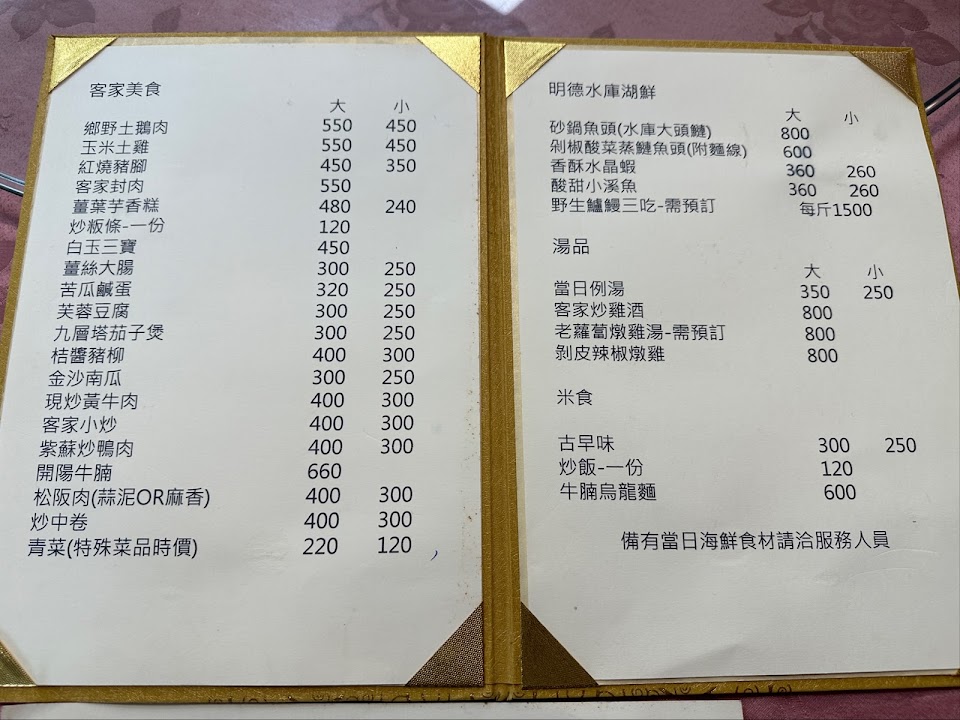 客家美食
大 小
鄉野土鵝肉 550 450
玉米土雞 550 450
紅燒豬腳 450 350
客家封肉 550
薑葉芋香糕 480 240
炒粄條-一份 120
白玉三寶 450
薑絲大腸 300 250
苦瓜鹹蛋 320 250
芙蓉豆腐 300 250
九層塔茄子煲 300 250
桔醬豬柳 400 300
金沙南瓜 300 250
現炒黃牛肉 400 300
客家小炒 400 300
紫蘇炒鴨肉 400 300
開陽牛腩 660
松阪肉(蒜泥OR麻香) 400 300
炒中卷 400 300
青菜(特殊菜品時價) 220 120
明德水庫湖鮮
大 小
砂鍋魚頭(水庫大頭鰱) 800
剁椒酸菜蒸鰱魚頭(附麵線) 600
香酥水晶蝦 360 260
酸甜小溪魚 360 260
野生鱸鰻三吃-需預訂 每斤1500
湯品
大 小
當日例湯 350 250
客家炒雞酒 800
老蘿蔔燉雞湯-需預訂 800
剝皮辣椒燉雞 800
米食
古早味 300 250
炒飯-一份 120
牛腩烏龍麵 600
備有當日海鮮食材請洽服務人員